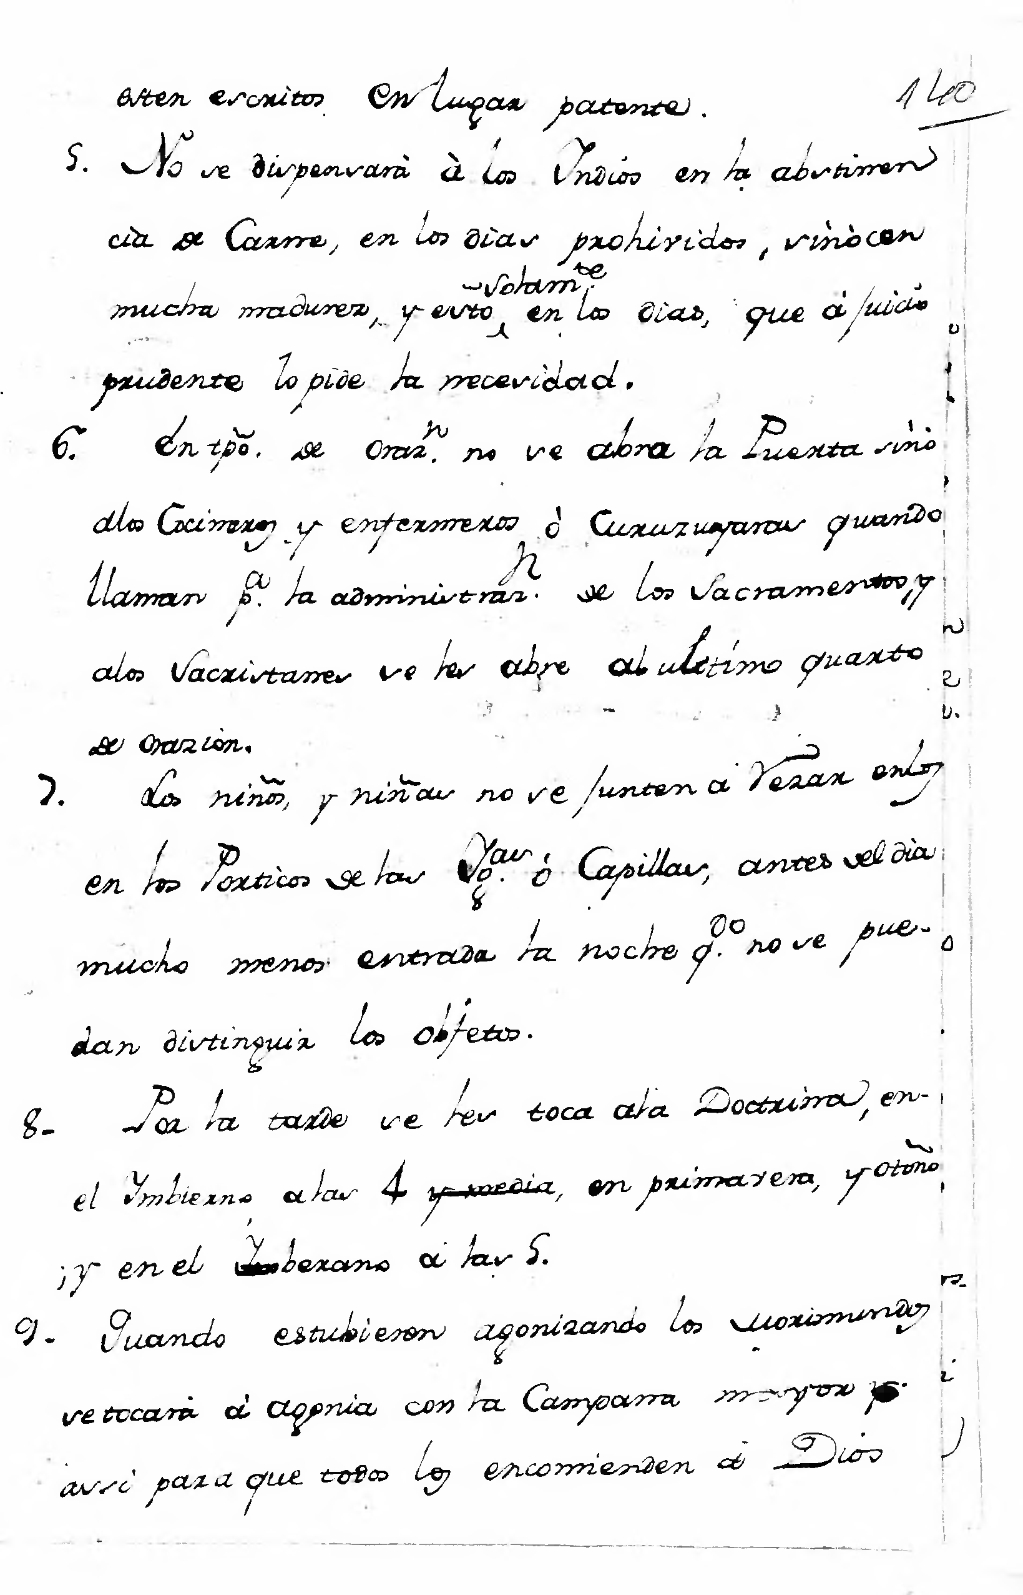 esten escritos en lugar patente. 140
5. No se dispensarà à los Indios en la abstinen
cia de Carne, en los dias prohividos, sinò con
mucha madurez, y esto en los dias, que á juicio
solam.te
prudente lo pide la necesidad.
6. En tpõ. de oraz.n no se abra la Puerta sinò
alos Cocineros y enfermeros ò Curuzuyaras quando
llaman p.a la administraz.n de los Sacramentos, y
alos Sacristanes se les abre al ultimo quarto
de orazion.
7. Los niños, y niñas no se junten á rezar en los
en los Porticos de las Yg.as ó Capillas, antes del dia
mucho menos entrada la noche q.do no se pue-
dan distinguir los objetos.
8- Por la tarde se les toca ala Doctrina, en-
el Imbierno alas 4 y media, en primavera, y otoño
; y en el berano á las 5.
9- Quando estubieren agonizando los Morimundos
se tocará á agonia con la Campana mayor
assi para que todos los encomienden á Dios